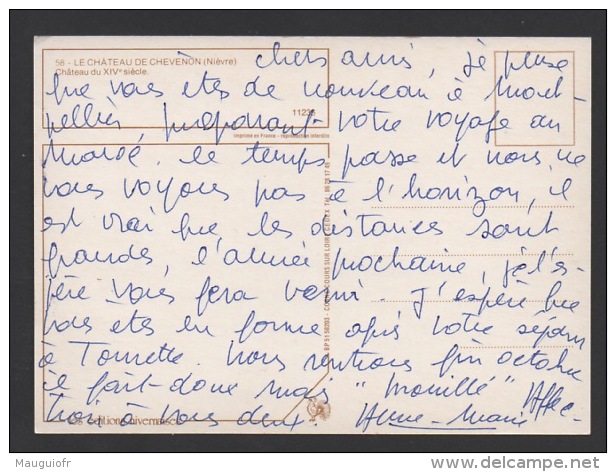 58 - LE CHÂTEAU DE CHEVENON (Nièvre)
Château du XIVe siècle.
11236
Imprimé en France - reproduction interdite
chers amis, je pense
que vous êtes de nouveau à Mont-
pellier préparant votre voyage au
le temps passe et nous ne
vous voyons pas à l'horizon, il
est vrai que les distances sont
grandes, l'année prochaine, je l'es-
père vous fera venir. J'espère que
vous êtes en forme après votre séjour
à Tourette. Nous rentrons fin octobre
il fait doux mais "mouillé" Affec-
tion à vous deux. Anne-Marie
Les éditions nivernaises
COSNE COURS SUR LOIRE CEDEX
Mauguiofr
www.delcampe.net